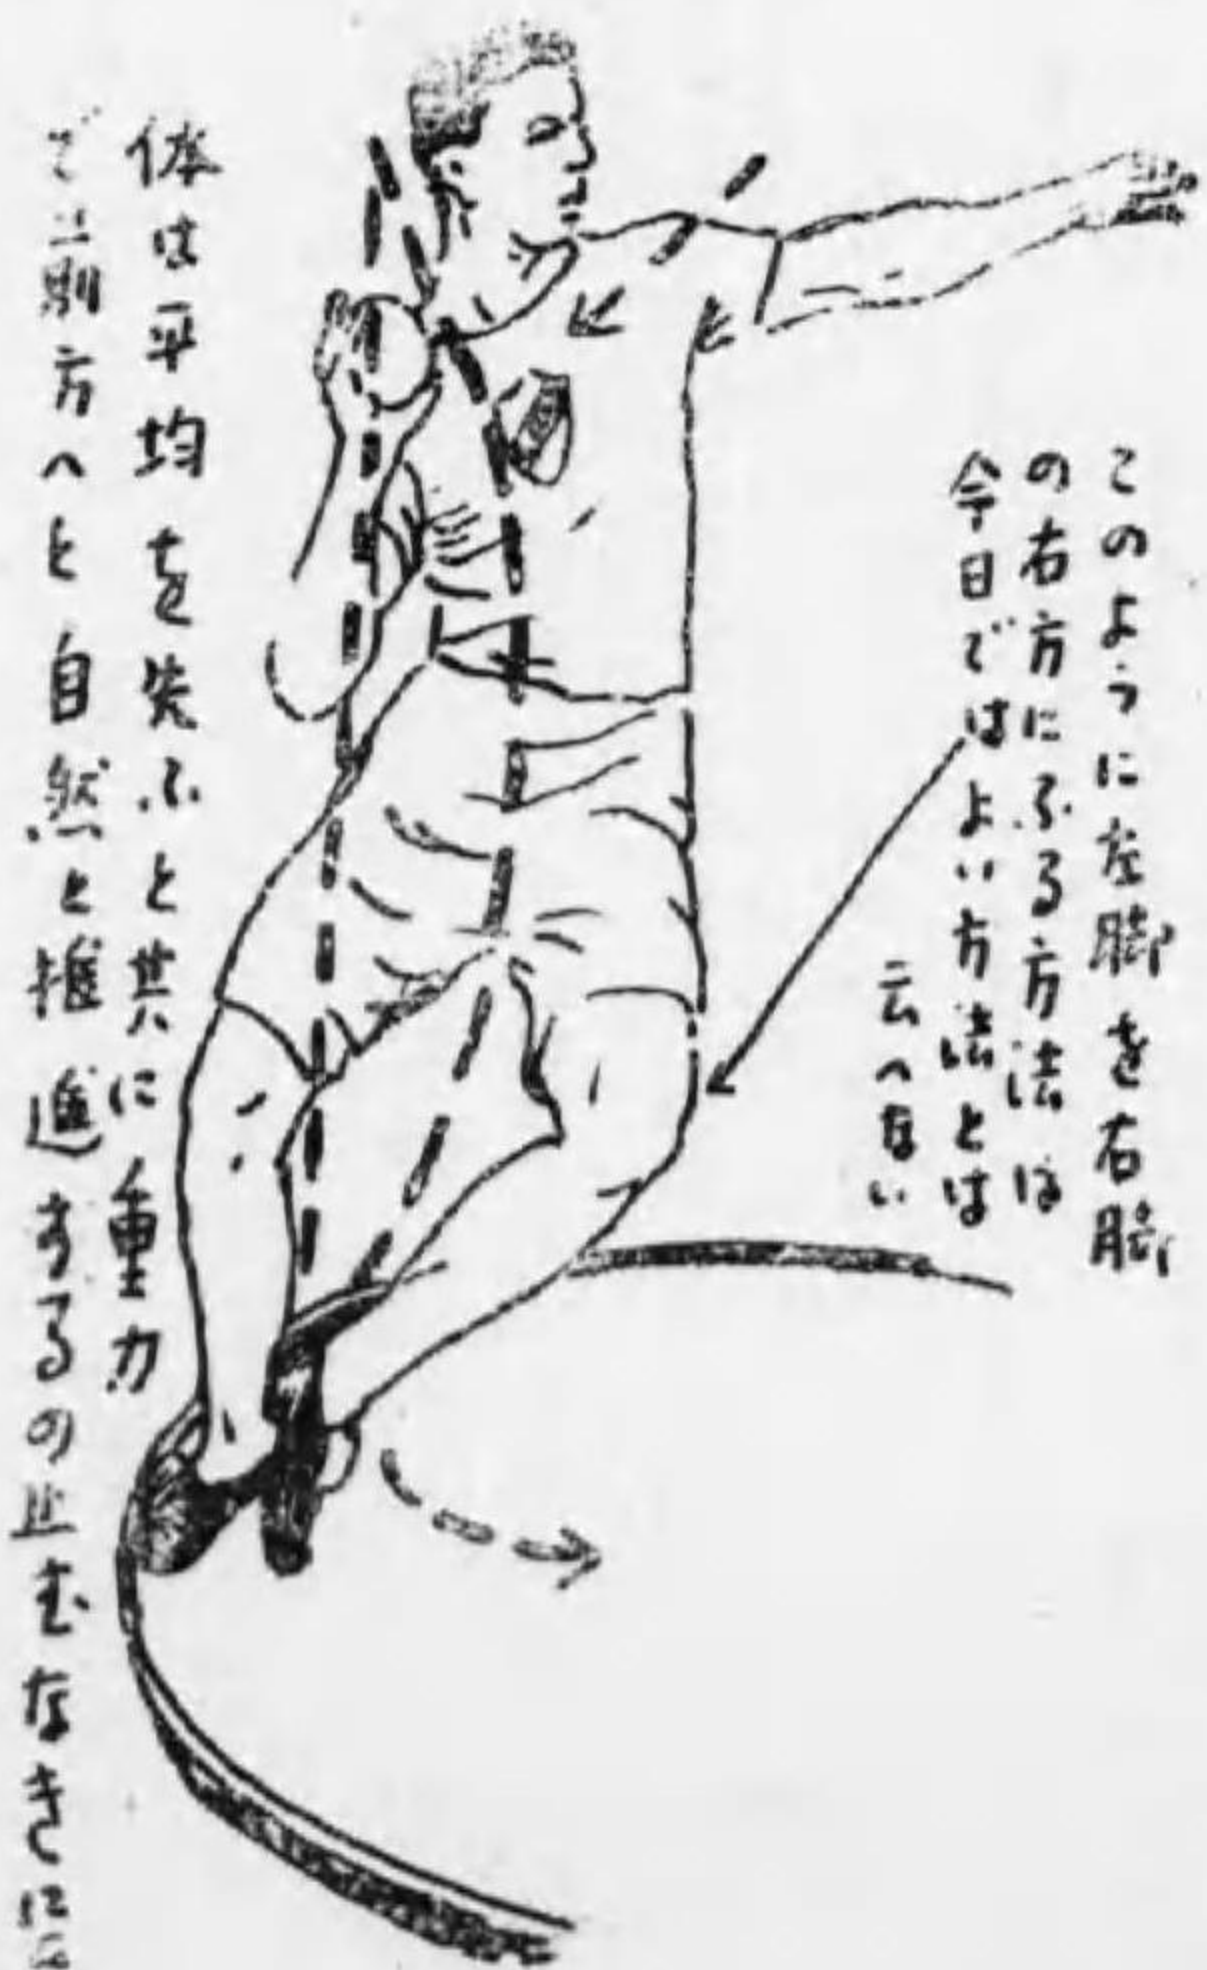 このように左脚を右脚
の右方にふる方法は
今日ではよい方法とは
云へない
体は平均を失ふと共に重力
で前方へと自然と推進するの止むなきに